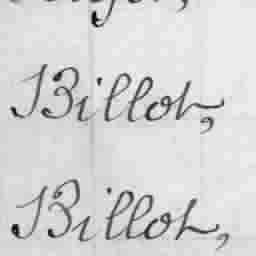 Billot,
Billot,